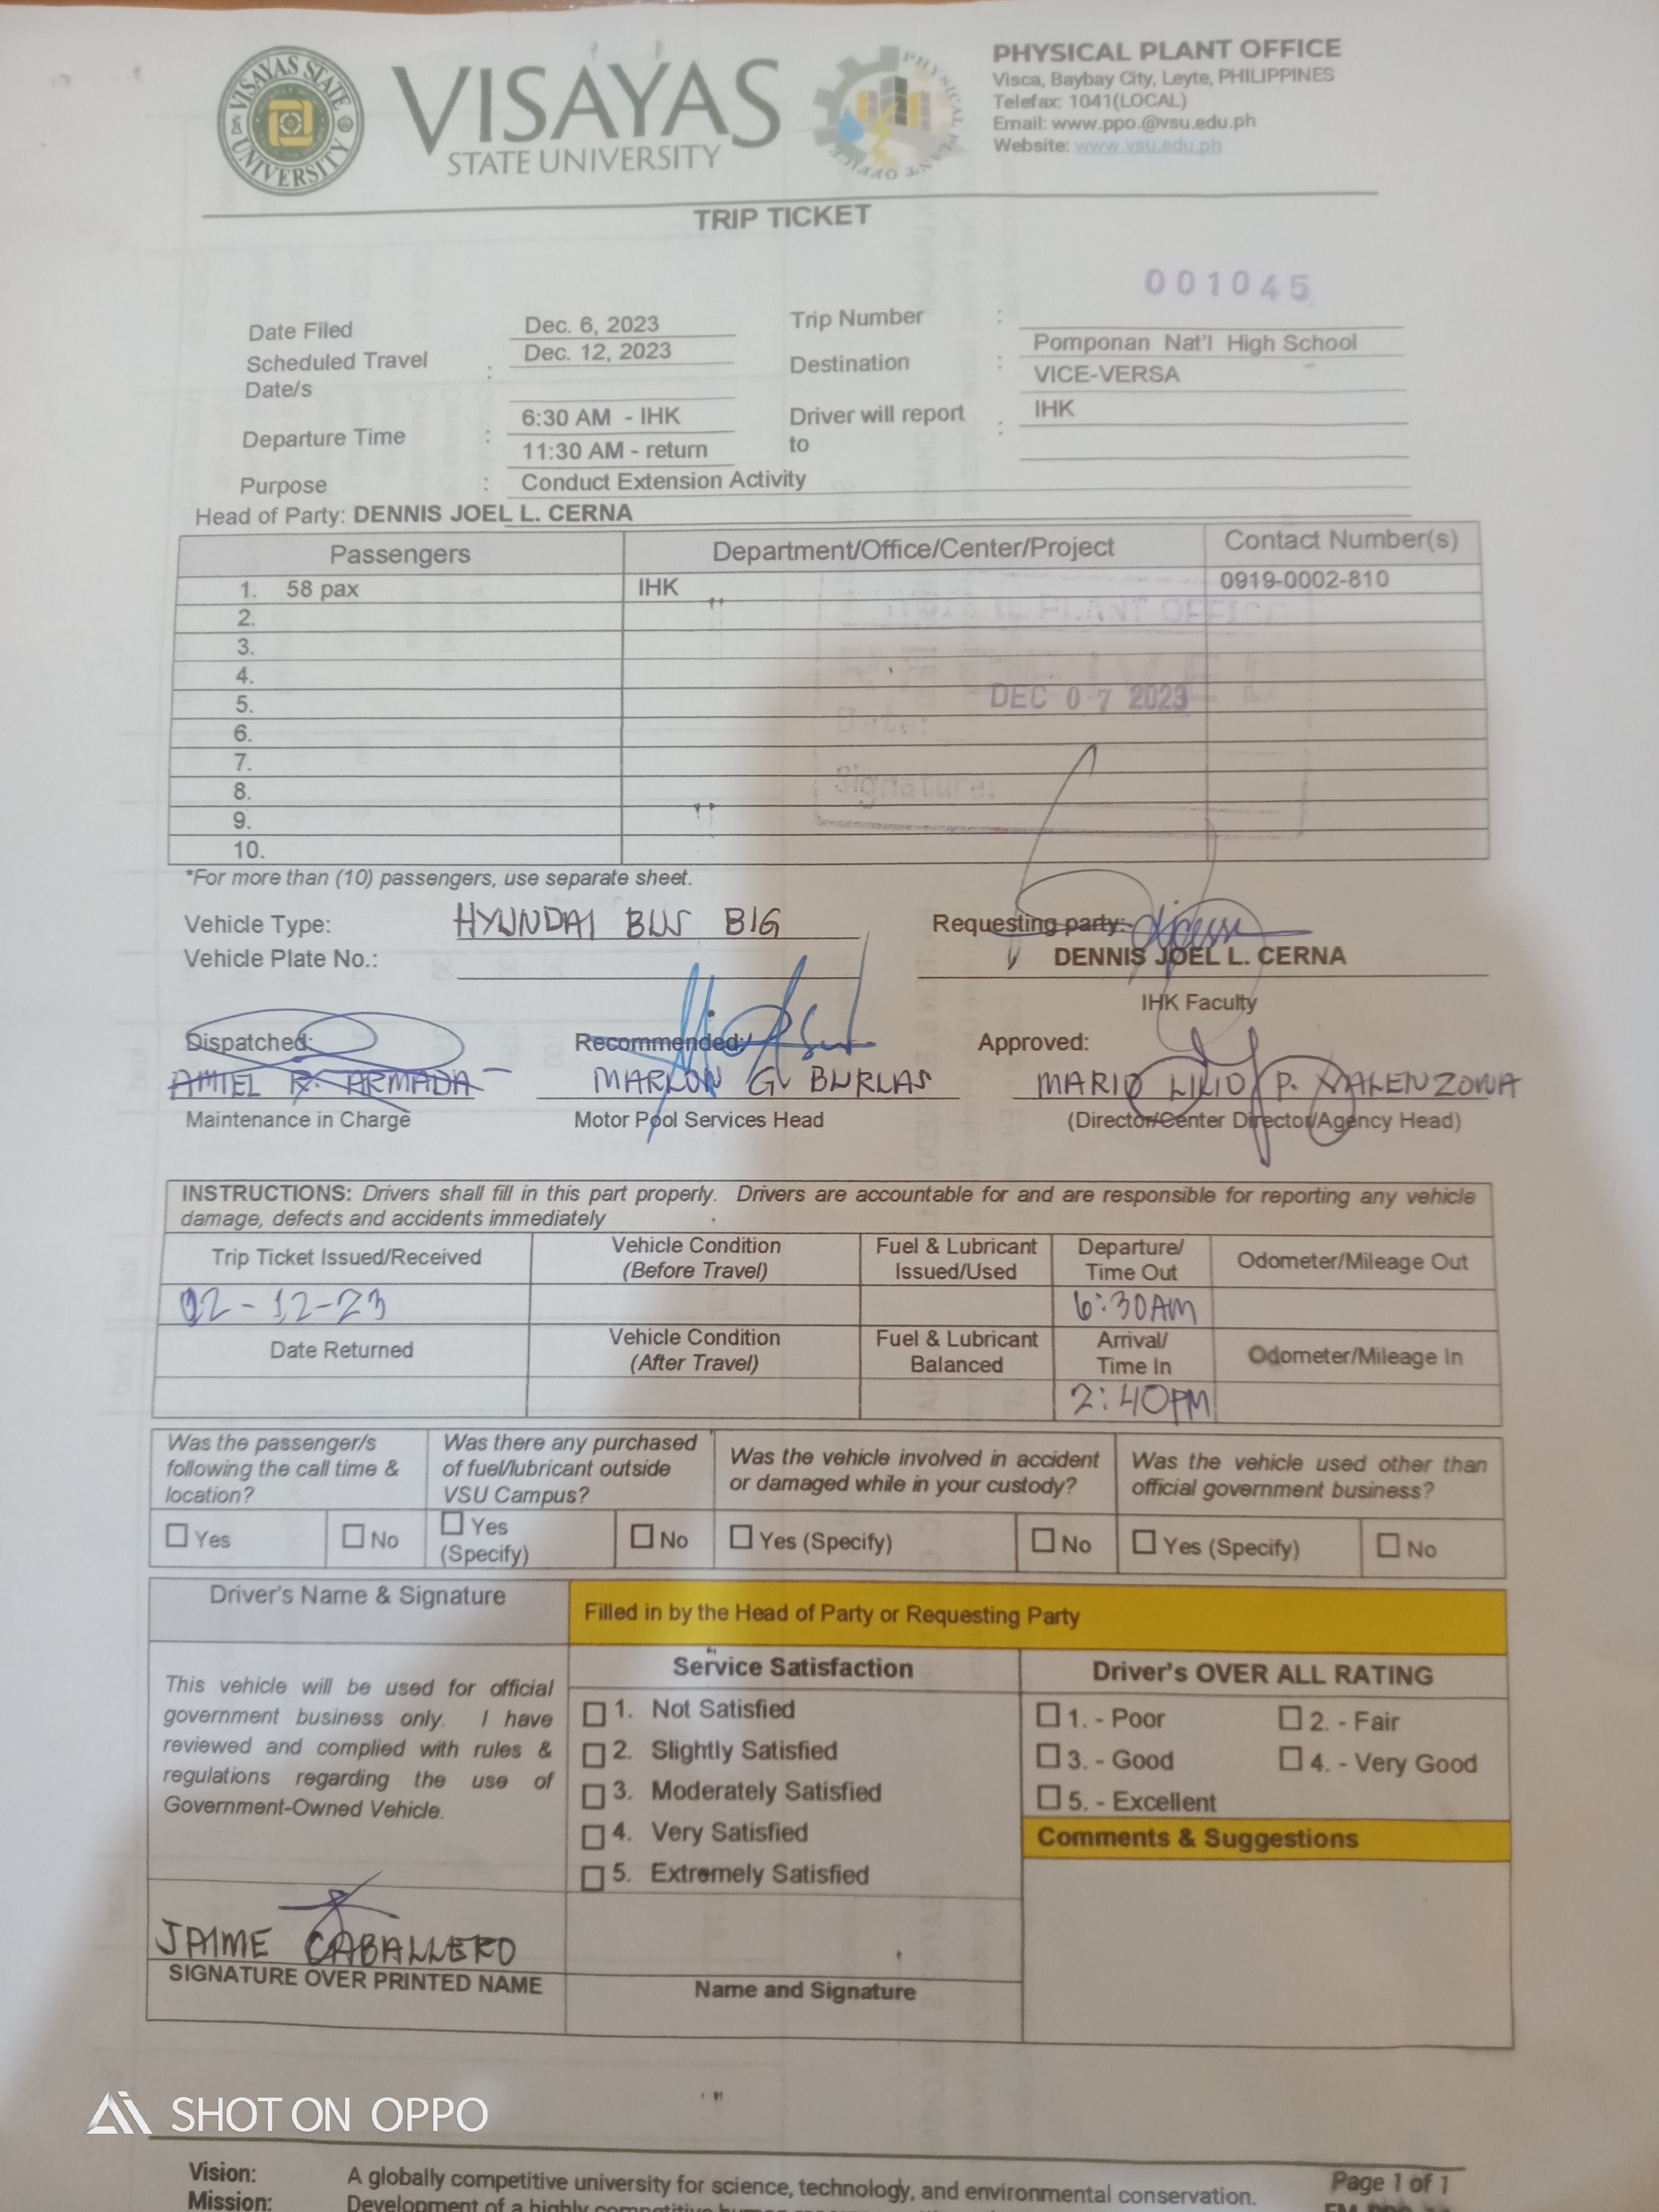 VISAYAS STATE UNIVERSITY
VISAYAS
STATE UNIVERSITY
PHYSICAL PLANT OFFICE
PHYSICAL PLANT OFFICE
Visca, Baybay City, Leyte, PHILIPPINES
Telefax: 1041(LOCAL)
Email: www.ppo.@vsu.edu.ph
Website: www.vsu.edu.ph
TRIP TICKET
001045
Date Filed Dec. 6, 2023 Trip Number :
Scheduled Travel Date/s : Dec. 12, 2023 Destination : Pomponan Nat'l High School
VICE-VERSA
Departure Time : 6:30 AM - IHK Driver will report to : IHK
11:30 AM - return
Purpose : Conduct Extension Activity
Head of Party: DENNIS JOEL L. CERNA
Passengers Department/Office/Center/Project Contact Number(s)
1. 58 pax IHK 0919-0002-810
2.
3.
4.
5.
6.
7.
8.
9.
10.
PLANT OFFICE
DEC 07 2023
Date:
Signature:
*For more than (10) passengers, use separate sheet.
Vehicle Type: HYUNDAI BUS BIG Requesting party:
Vehicle Plate No.: DENNIS JOEL L. CERNA
IHK Faculty
Dispatched: Recommended: Approved:
AMIEL R. ARMADA MARLON G. BURLAS MARIO LILIO P. VALENZONA
Maintenance in Charge Motor Pool Services Head (Director/Center Director/Agency Head)
INSTRUCTIONS: Drivers shall fill in this part properly. Drivers are accountable for and are responsible for reporting any vehicle
damage, defects and accidents immediately
Trip Ticket Issued/Received Vehicle Condition (Before Travel) Fuel & Lubricant Issued/Used Departure/ Time Out Odometer/Mileage Out
12-12-23 6:30AM
Date Returned Vehicle Condition (After Travel) Fuel & Lubricant Balanced Arrival/ Time In Odometer/Mileage In
2:40PM
Was the passenger/s following the call time & location? Was there any purchased of fuel/lubricant outside VSU Campus? Was the vehicle involved in accident or damaged while in your custody? Was the vehicle used other than official government business?
Yes No Yes (Specify) No Yes (Specify) No Yes (Specify) No
Driver's Name & Signature Filled in by the Head of Party or Requesting Party
This vehicle will be used for official
government business only. I have
reviewed and complied with rules &
regulations regarding the use of
Government-Owned Vehicle.
Service Satisfaction
1. Not Satisfied
2. Slightly Satisfied
3. Moderately Satisfied
4. Very Satisfied
5. Extremely Satisfied
Driver's OVER ALL RATING
1. - Poor 2. - Fair
3. - Good 4. - Very Good
5. - Excellent
Comments & Suggestions
JAIME CABALLERO
SIGNATURE OVER PRINTED NAME
Name and Signature
SHOT ON OPPO
Vision: A globally competitive university for science, technology, and environmental conservation.
Page 1 of 1
Mission: Development of a highly competitive human